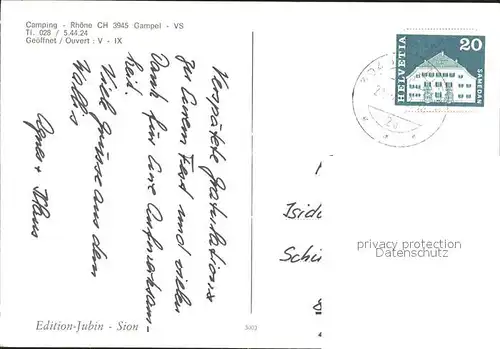 Camping - Rhône CH 3945 Gampel - VS
Tl. 028 / 5.44.24
Geöffnet / Ouvert : V - IX
Verspätete Gratulationen
zur Eurem Fest und vielen
Dank für Eure Aufmerksam-
keit.
Viele Grüsse aus dem
Wallis
Agnes + Klaus
Edition-Jubin - Sion
5002
HELVETIA
20
SAMEDAN
Isid
Schü
privacy protection
Datenschutz